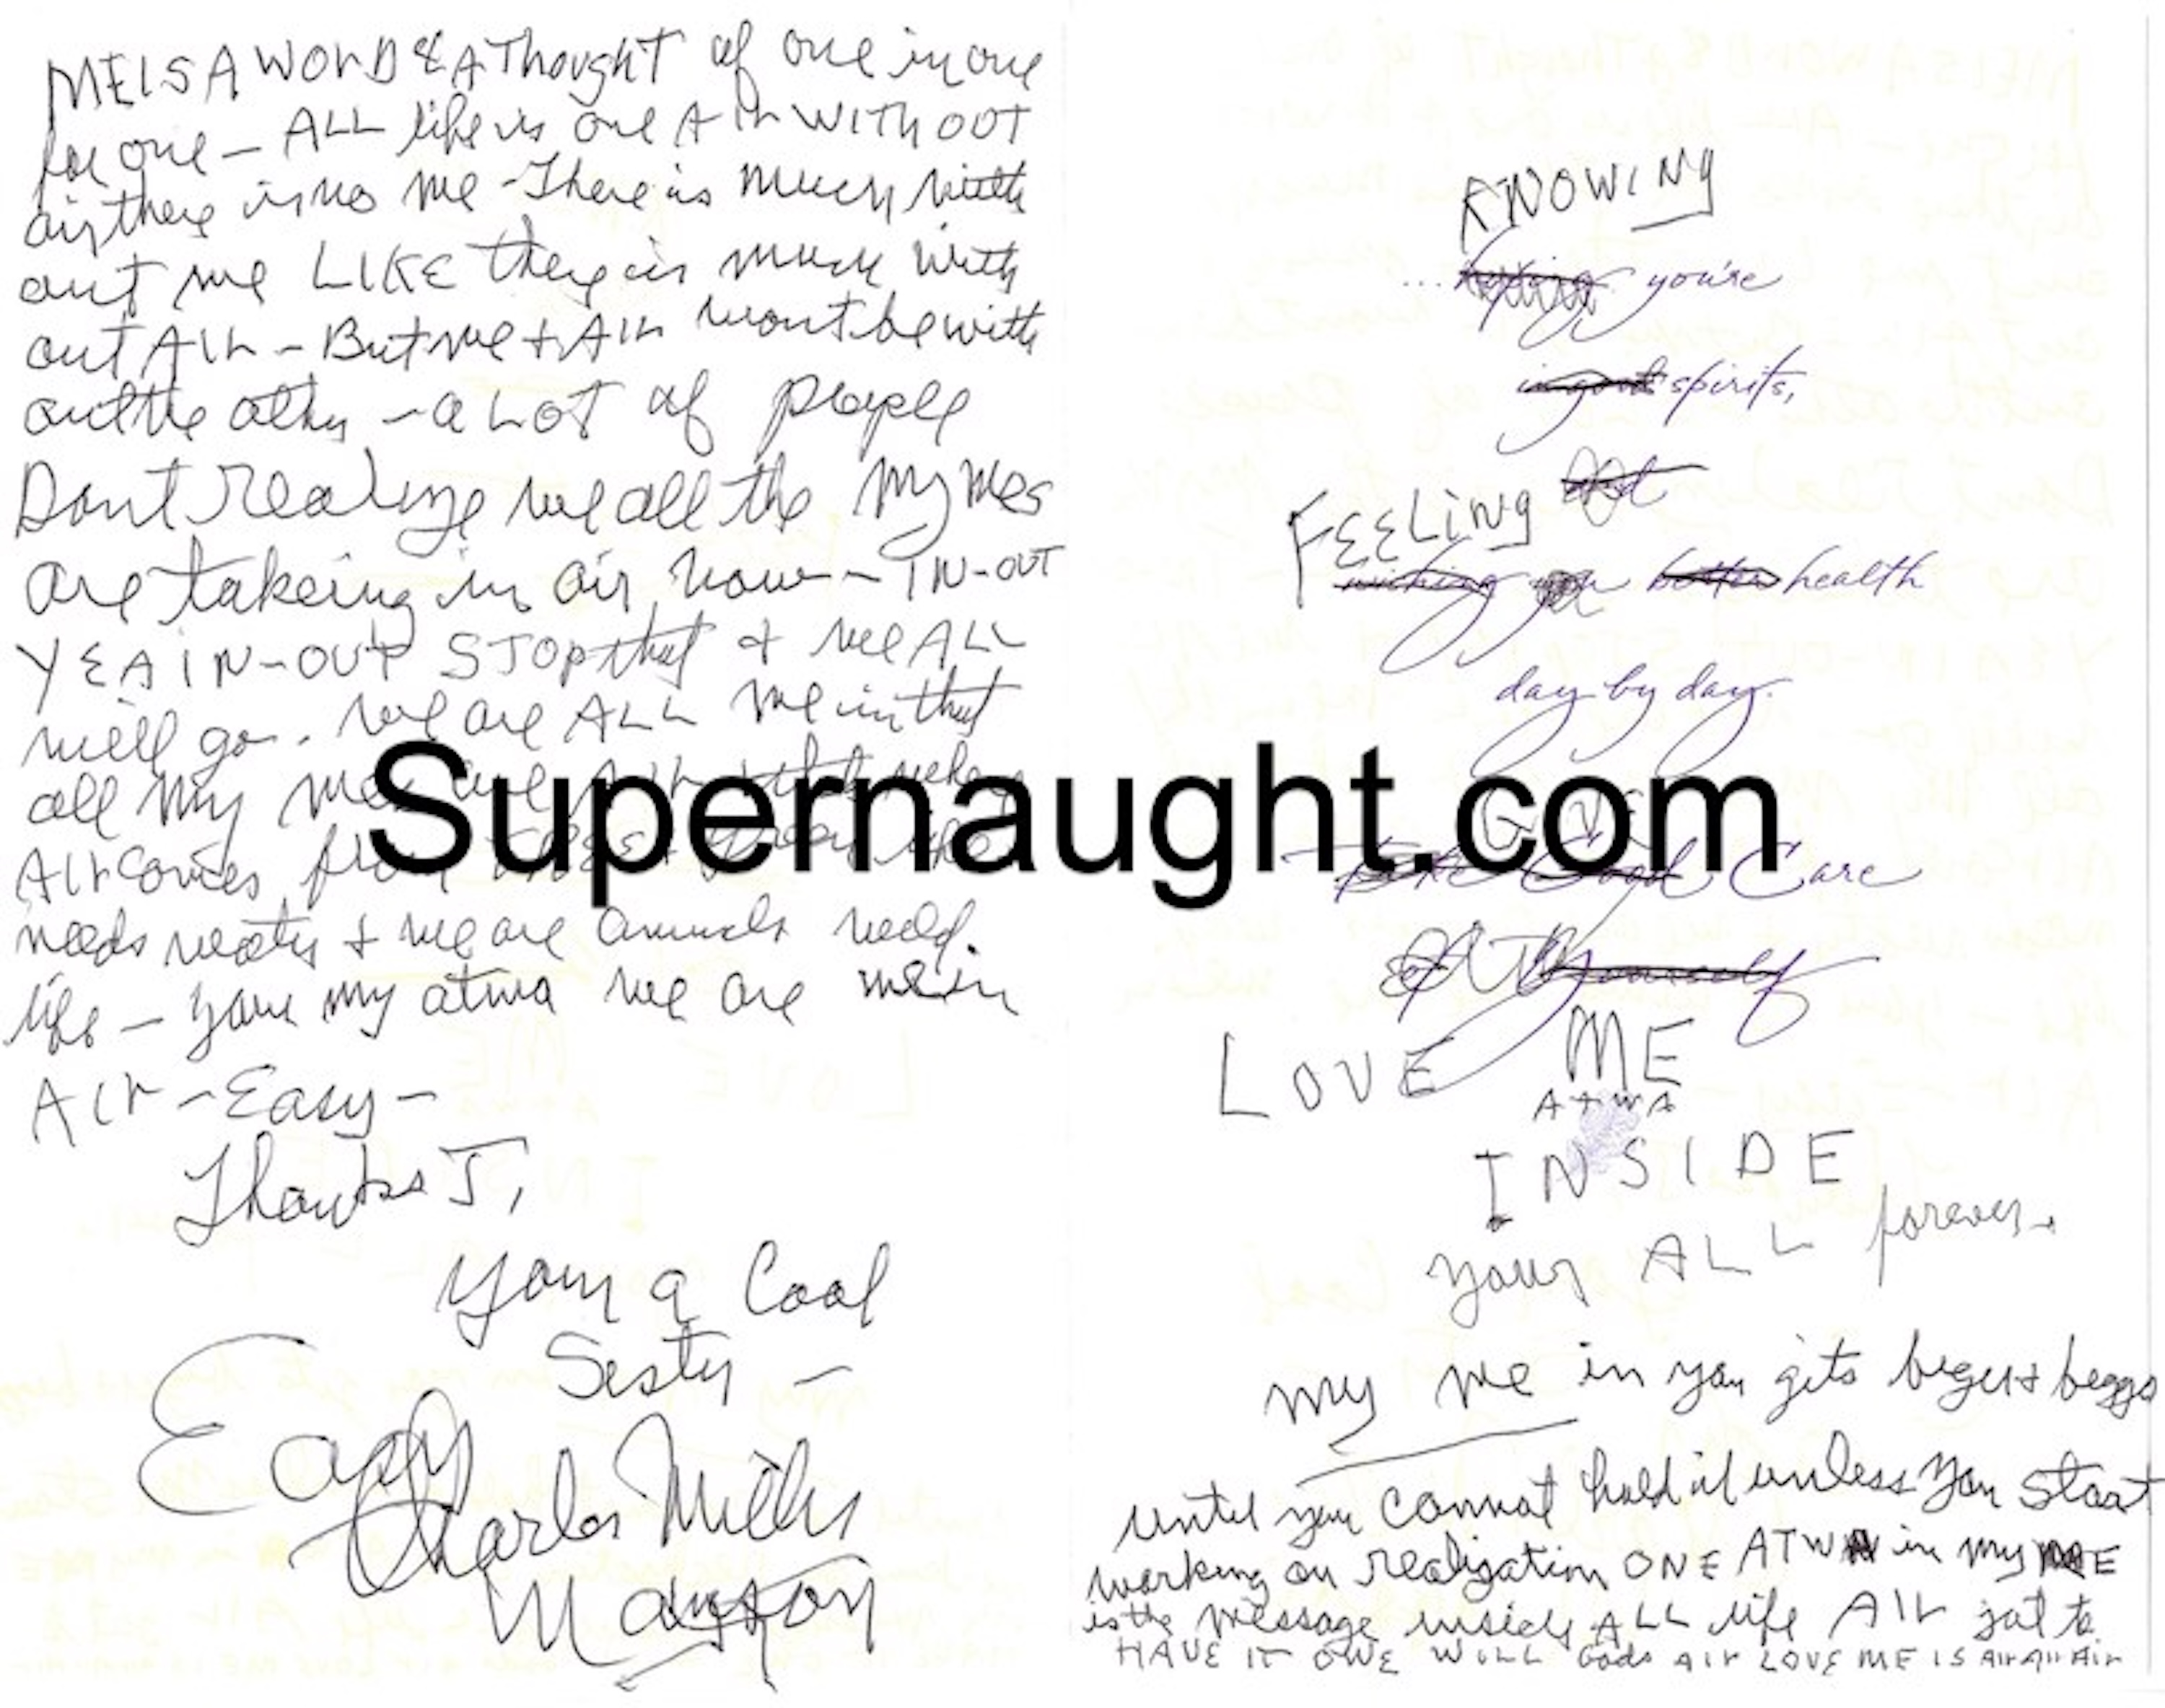 ME IS A WOrD & A Thought of one in one
for one – ALL life is one Air WITHOOT
air there is no me - There is much with
out me LIKE there is much with
out AIr – But me + AIr wont be with
out the other – a LOT of people
Dont realize we all the my mes
are takeing in air now – IN-OUT
YEA IN-OUT STOP that & we ALL
will go. We are ALL me in that
all My mes are
AIr comes from trees +
needs water + we are animals need
life – your my atwa we are me in
AIr – Easy –
Thanks J,
Your a Cool
Sesty –
Easy
Charles Milles
Manson
KNOWING
...hoping you're
in good spirits,
and
FEELiNg
wishing you better health
day by day.
GIVE
Take Good Care
of
yourself
LOVE ME
ATWA
INSIDE
your ALL forever
my me in you gets biger + beggr
until you cannot hold it unless you start
working on realization ONE ATWA in my ME
is the message inside ALL life AIr got to
HAVE IT ONE WILL Gods AIr LOVE ME IS AIr AIr AIr
Supernaught.com